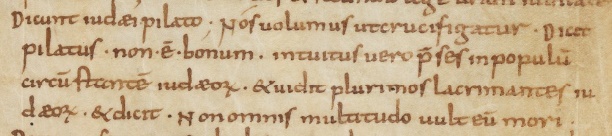 Dicunt iudaei pilato · Nos volumus ut crucifigatur · Dicit
pilatus · non ē · bonum · intuitus vero p̄ses in populū
circū stantē iudaeoꝝ · & vidit plurimos lacrimantes iu
daeoꝝ · & dicit · Non omnis multitudo vult eū mori ·